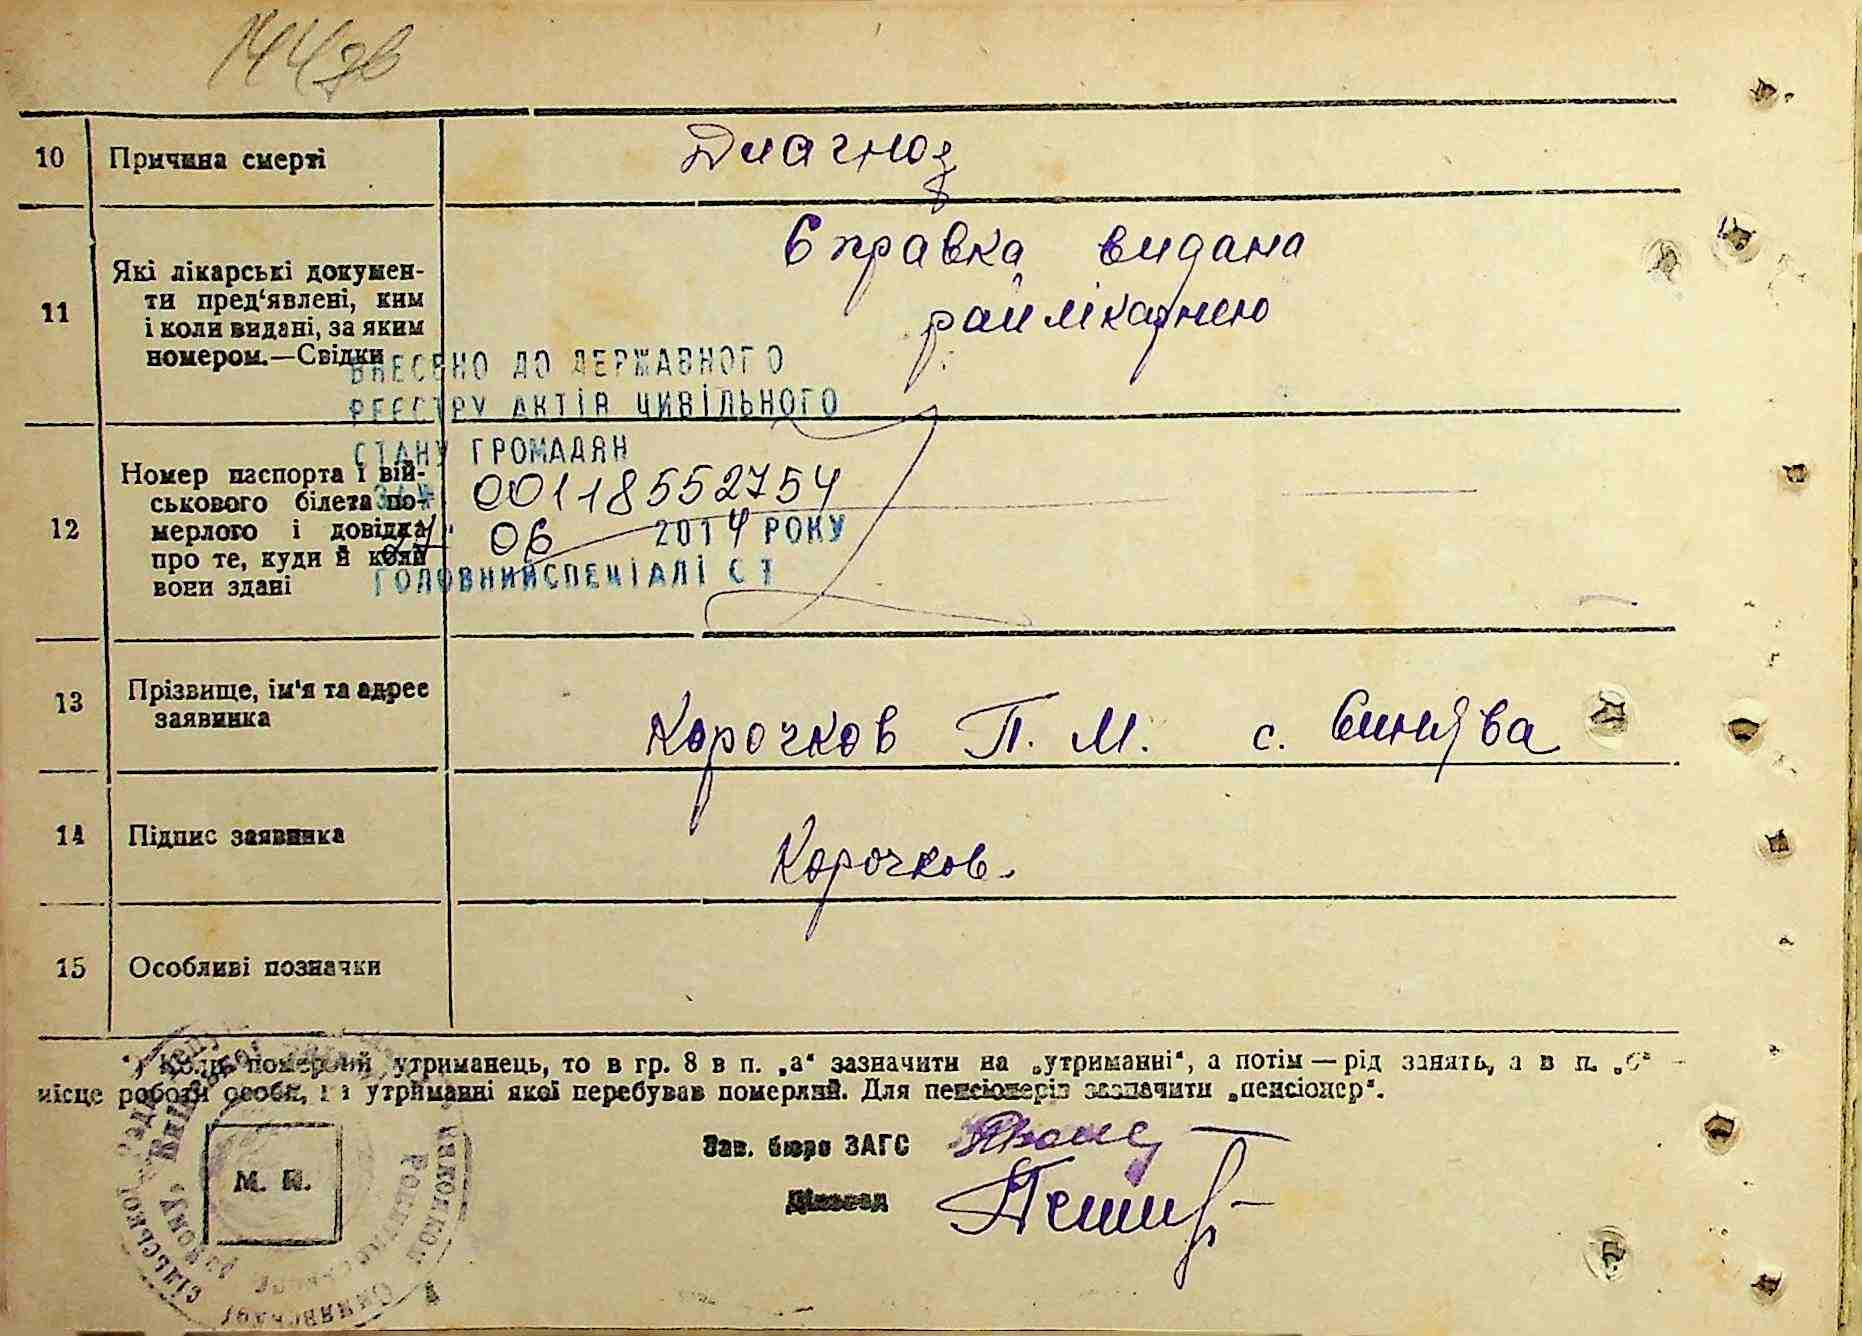 144зв
10 Причина смерті Диагноз
11 Які лікарські докумен-
ти пред'явлені, ким
і коли видані, за яким
номером.—Свідки
Справка видана
райлікарнею
ВНЕСЕНО ДО ДЕРЖАВНОГО
РЕЄСТРУ АКТІВ ЦИВІЛЬНОГО
СТАНУ ГРОМАДЯН
ЗА № 00118552754
06 2014 РОКУ
ГОЛОВНИЙ СПЕЦІАЛІСТ
12 Номер паспорта і вій-
ськового білета по-
мерлого і довідка
про те, куди й коли
вони здані
13 Прізвище, ім'я та адрес
заявника
Корочков П. М. с. Синява
14 Підпис заявника Корочков.
15 Особливі позначки
*) Коли померлий утриманець, то в гр. 8 в п. „а“ зазначити на „утриманні“, а потім — рід занять, а в п. „б“ —
місце роботи особи, на утриманні якої перебував померлий. Для пенсіонерів зазначити „пенсіонер“.
Зав. бюро ЗАГС
Діловод
М. П.